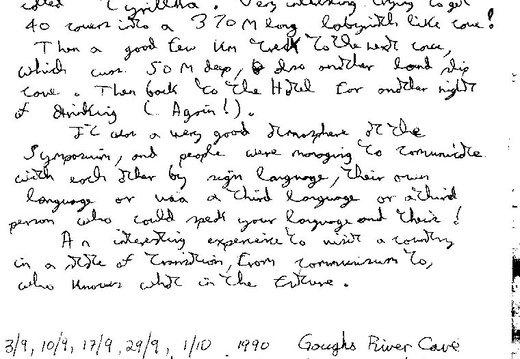 called "Cyrillka". Very interesting trying to get
40 cavers into a 370M long labyrinth like cave!
Then a good few km trek to the next cave,
which was 50M deep, also another land slip
cave. Then back to the Hotel for another night
of drinking (Again!).
It was a very good atmosphere at the
Symposium, and people were managing to comunicate
with each other by sign language, their own
language or via a third language or a third
person who could speak your language and theirs!
An interesting experience to visit a country
in a state of transition, from communisum to,
who knows what in the future.
3/9, 10/9, 17/9, 29/9, 1/10 1990 Goughs River Cave